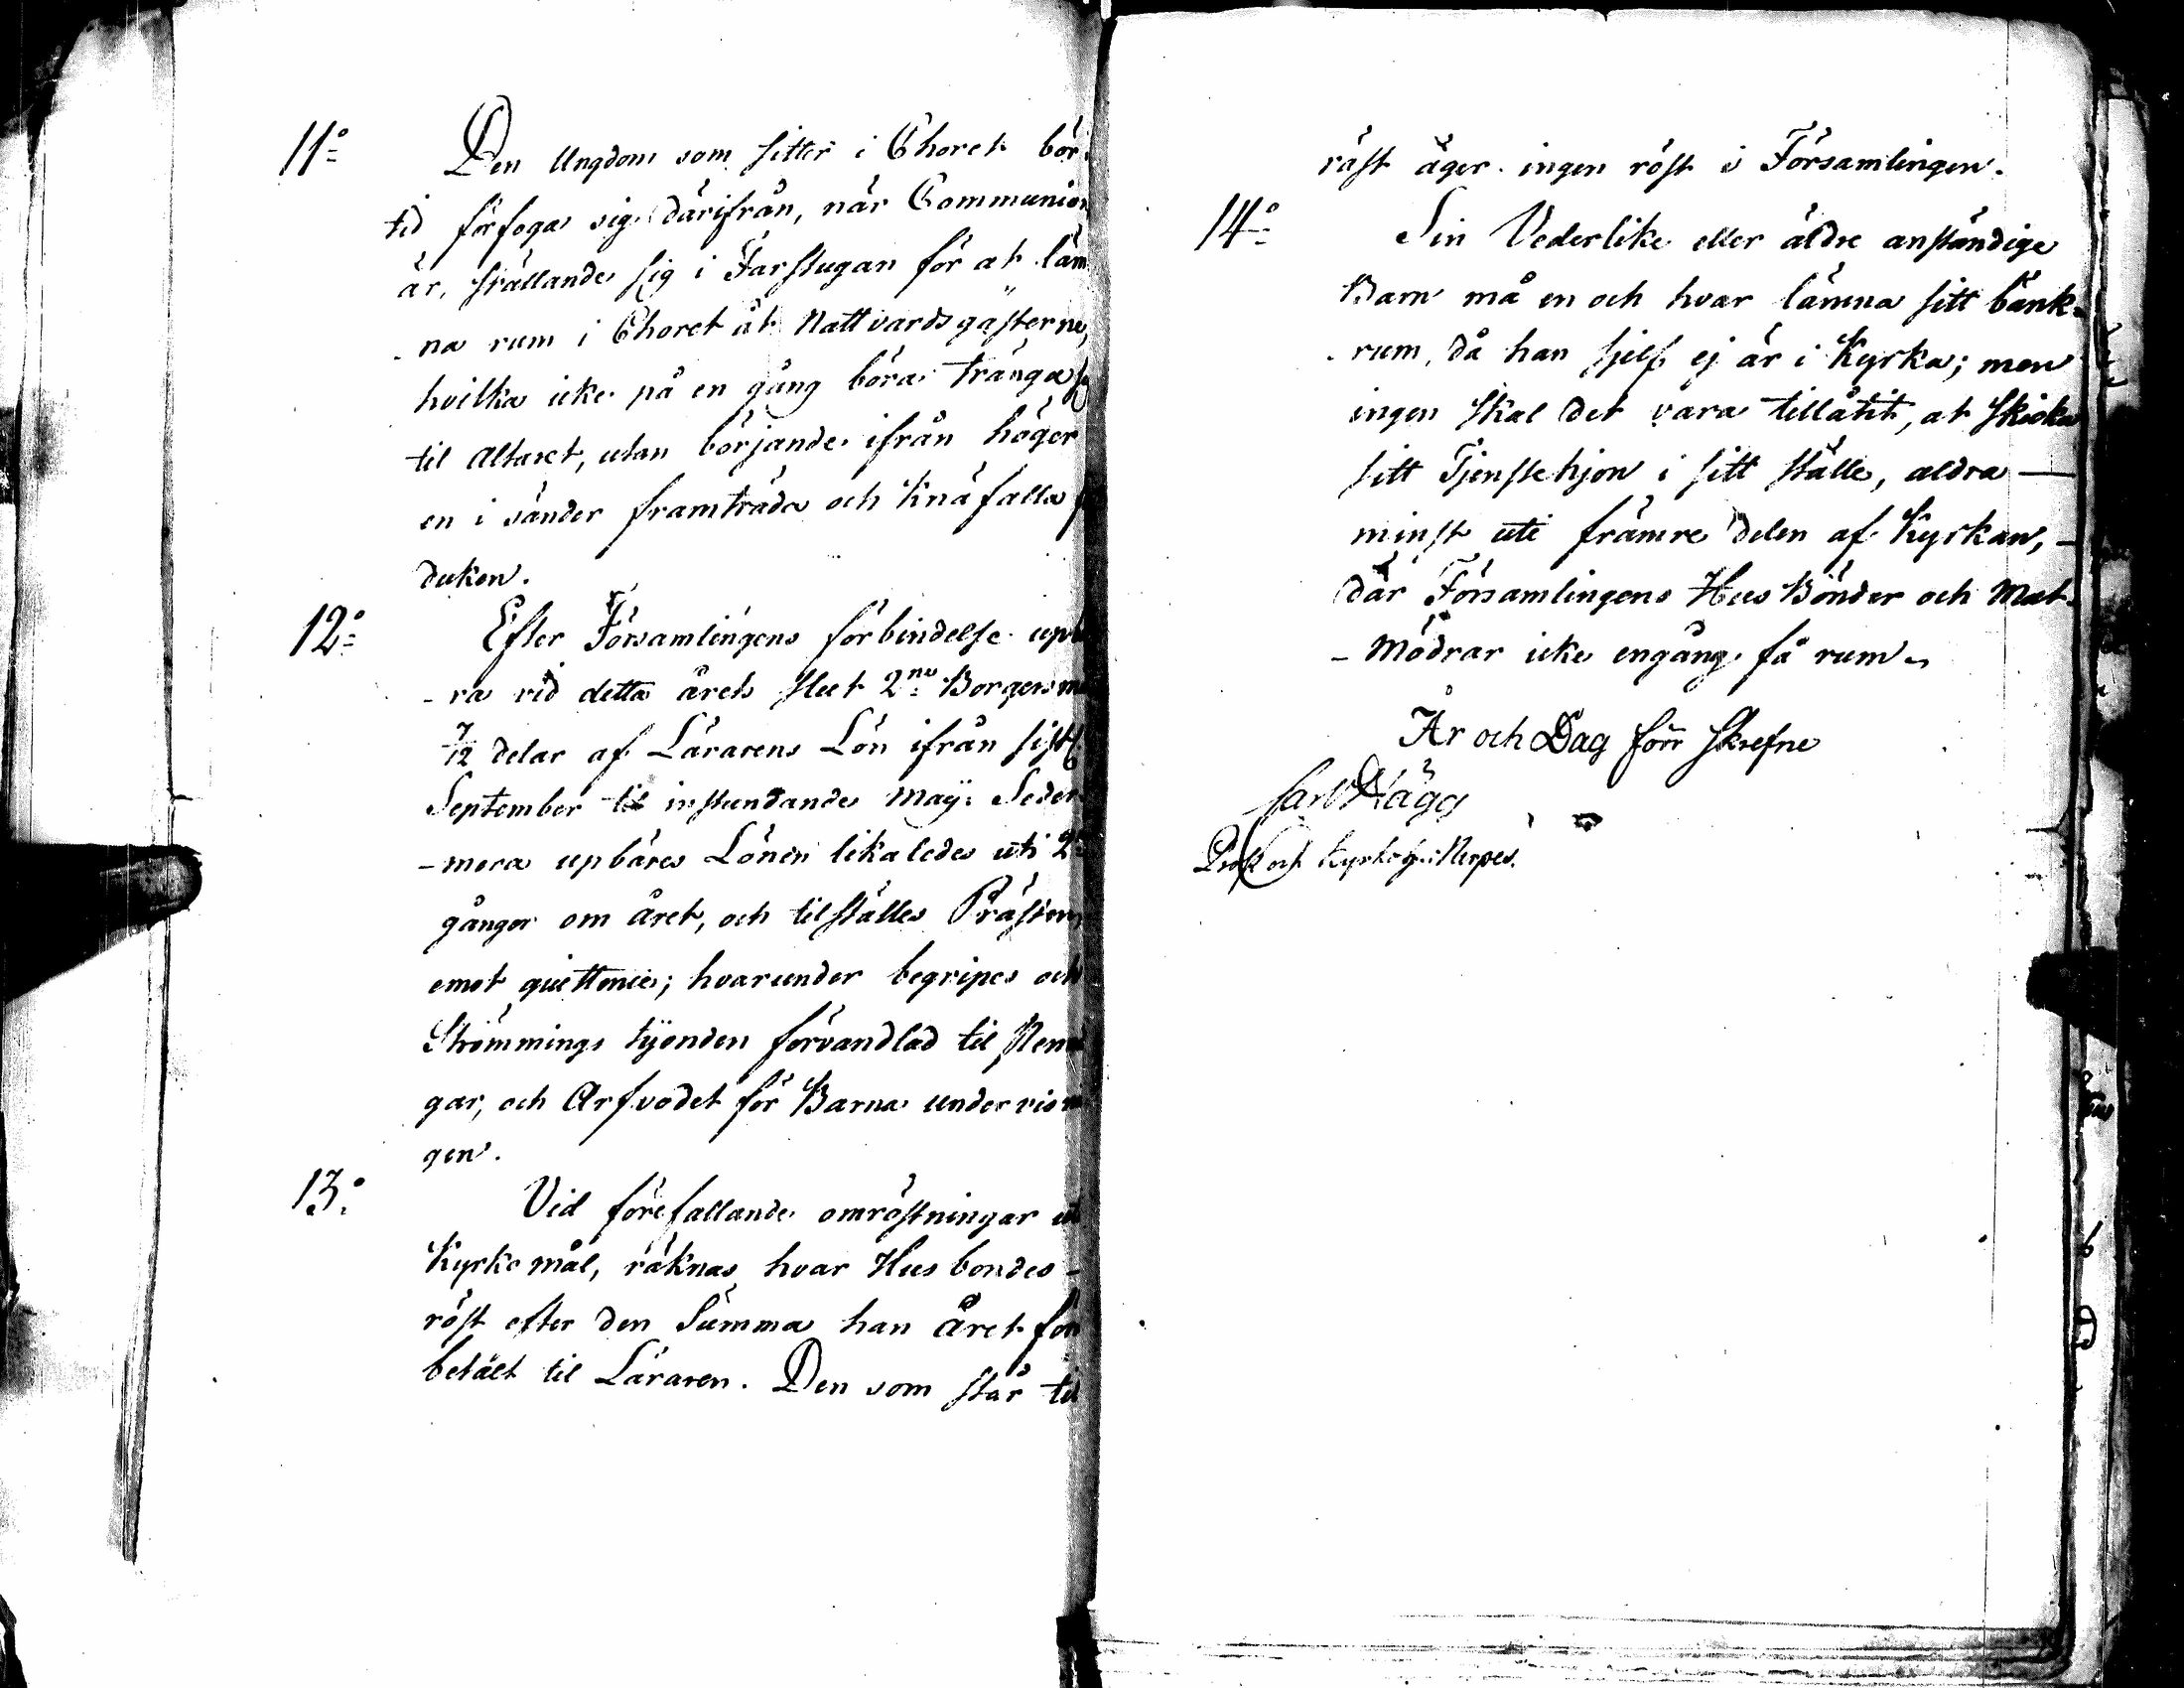 11o Den Ungdom som sitter i Choret bör i
tid förfoga sig därifrån, när Communion
är, ställande sig i Farstugan för at läm
-na rum i Choret åt Nattvardsgästerne,
hvilka icke på en gång böra tränga sig
til Altaret, utan börjande ifrån höger
en i sänder framträda och Knäfalla
duken.
12o Efter Församlingens förbindelse upb
-ra vid detta årets slut 2ne Borgersmä
7/12 delar af Lärarens Lön ifrån sistl.
September til instundande Maÿ. Seder
-mera upbäres Lönen likaledes uti 2
gånger om året, och tilställes Prästen,
emot quittence; hvarunder begripes och
Strömmings tÿonden förvandlad til Penni
gar, och Arfvodet för Barna undervisn
gen.
13o Vid förefallande omröstningar uti
Kyrko mål, räknas hvar Hus bondes
röst efter den Summa han Året förr
betalt til Läraren. Den som står til
räst äger ingen röst i Församlingen.
14o Sin Vederlike eller äldre anständige
Barn må en och hvar lämna sitt bänk-
-rum, då han sjelf ej är i Kyrka; men
ingen skal det vara tillåtit, at skicka
sitt Tjenstehjon i sitt ställe, aldra
minst uti främre delen af Kyrkan,
där Församlingens Hus Bönder och Mat-
-Mödrar icke engång få rum.
År och Dag förr skrefne
Carl Hägg
Prost och Kyrkoh. i Nerpes.